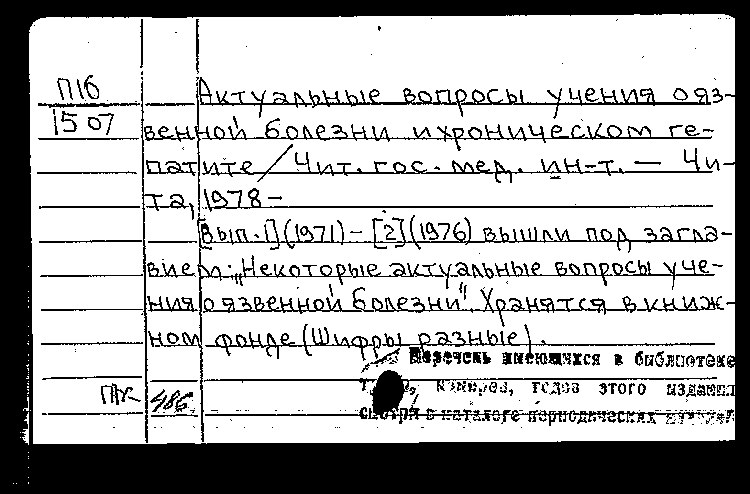 П16
1507
Актуальные вопросы учения о яз-
венной болезни и хроническом ге-
патите / Чит. гос. мед. ин-т. — Чи-
та, 1978 -
[Вып. 1] (1971) - [2] (1976) вышли под загла-
вием: „Некоторые актуальные вопросы уче-
ния о язвенной болезни". Хранятся в книж-
ном фонде (Шифры разные).
Перечень имеющихся в библиотеке
номеров, годов этого издания
смотри в каталоге периодических
486